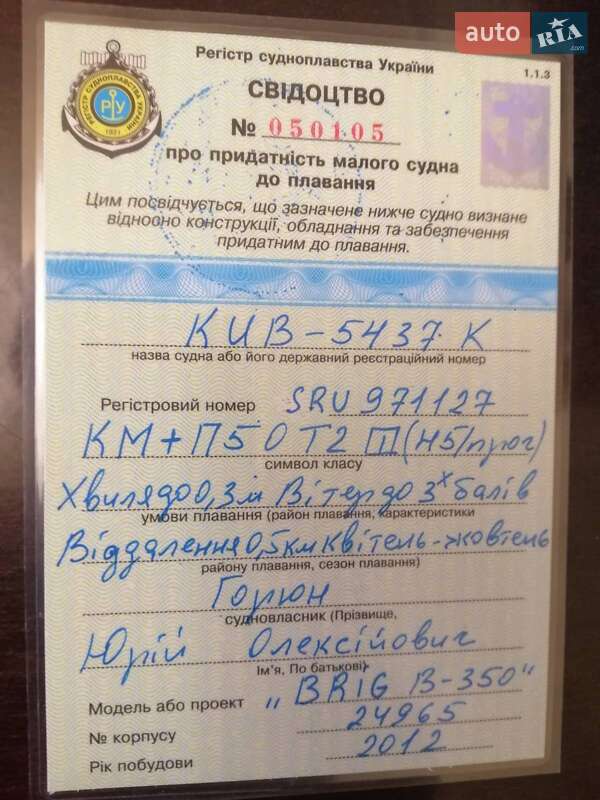 auto RIA .com
Регістр судноплавства України
1.1.3
РЕГІСТР СУДНОПЛАВСТВА УКРАЇНИ
РУ
СВІДОЦТВО
№ 050105
про придатність малого судна
до плавання
Цим посвідчується, що зазначене нижче судно визнане
відносно конструкції, обладнання та забезпечення
придатним до плавання.
КИВ-5437 К
назва судна або його державний реєстраційний номер
Регістровий номер SRU 971127
КМ+П50Т2 III (Н5/прог)
символ класу
Хвиля до 0,3м Вітер до 3х балів
умови плавання (район плавання, характеристики
Віддалення 0,5км квітень-жовтень
району плавання, сезон плавання)
Горюн
судновласник (Прізвище,
Юрій Олексійович
Ім'я, По батькові)
Модель або проект "BRIG B-350"
№ корпусу 24965
Рік побудови 2012